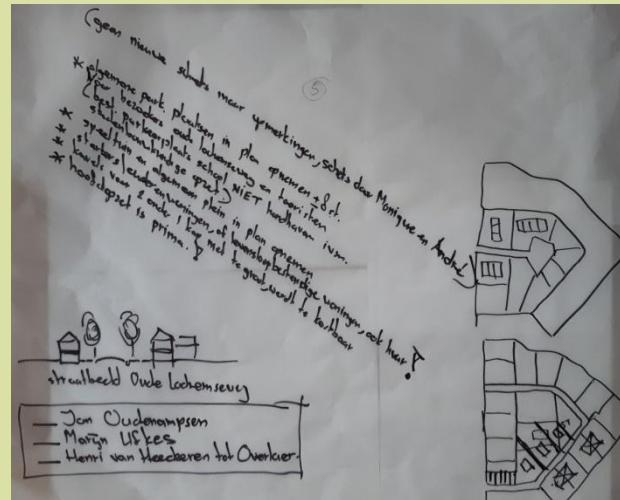 5
(geen nieuwe schets maar opmerkingen, schets door Monique en André)
* algemene park. plaatsen in plan opnemen ± 8 st.
(voor bezoekers oude Lochemseweg en toeristen
best. parkeerplaats school NIET handhaven ivm.
stedenbouwkundige opzet)
* speeltuin en algemeen plein in plan opnemen
* starters/ouderenwoningen, of levensloopbestendige woningen, ook huur!
* kavels van 2 onder 1 kap niet te groot, wordt te kostbaar
* hoofdopzet is prima.
straatbeeld Oude Lochemseweg
— Jan Oudenampsen
— Martijn Ulfkes
— Henri van Heeckeren tot Overlaer